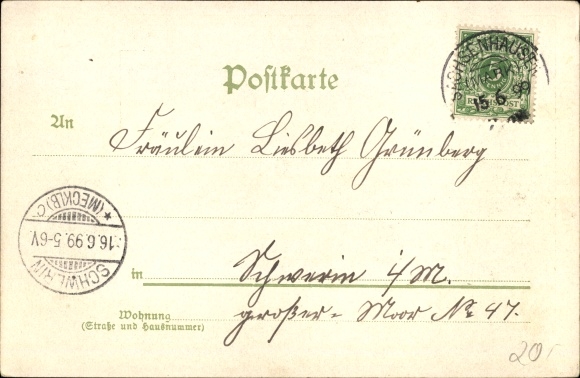 Postkarte
SACHSENHAUSEN
15.6.99
REICHSPOST
An
Fräulein Liesbeth Grünberg
SCHWERIN (MECKLB) c.
16.6.99.5-6V.
in
Schwerin i/M.
Wohnung
(Straße und Hausnummer)
großer- Moor No 47.
20